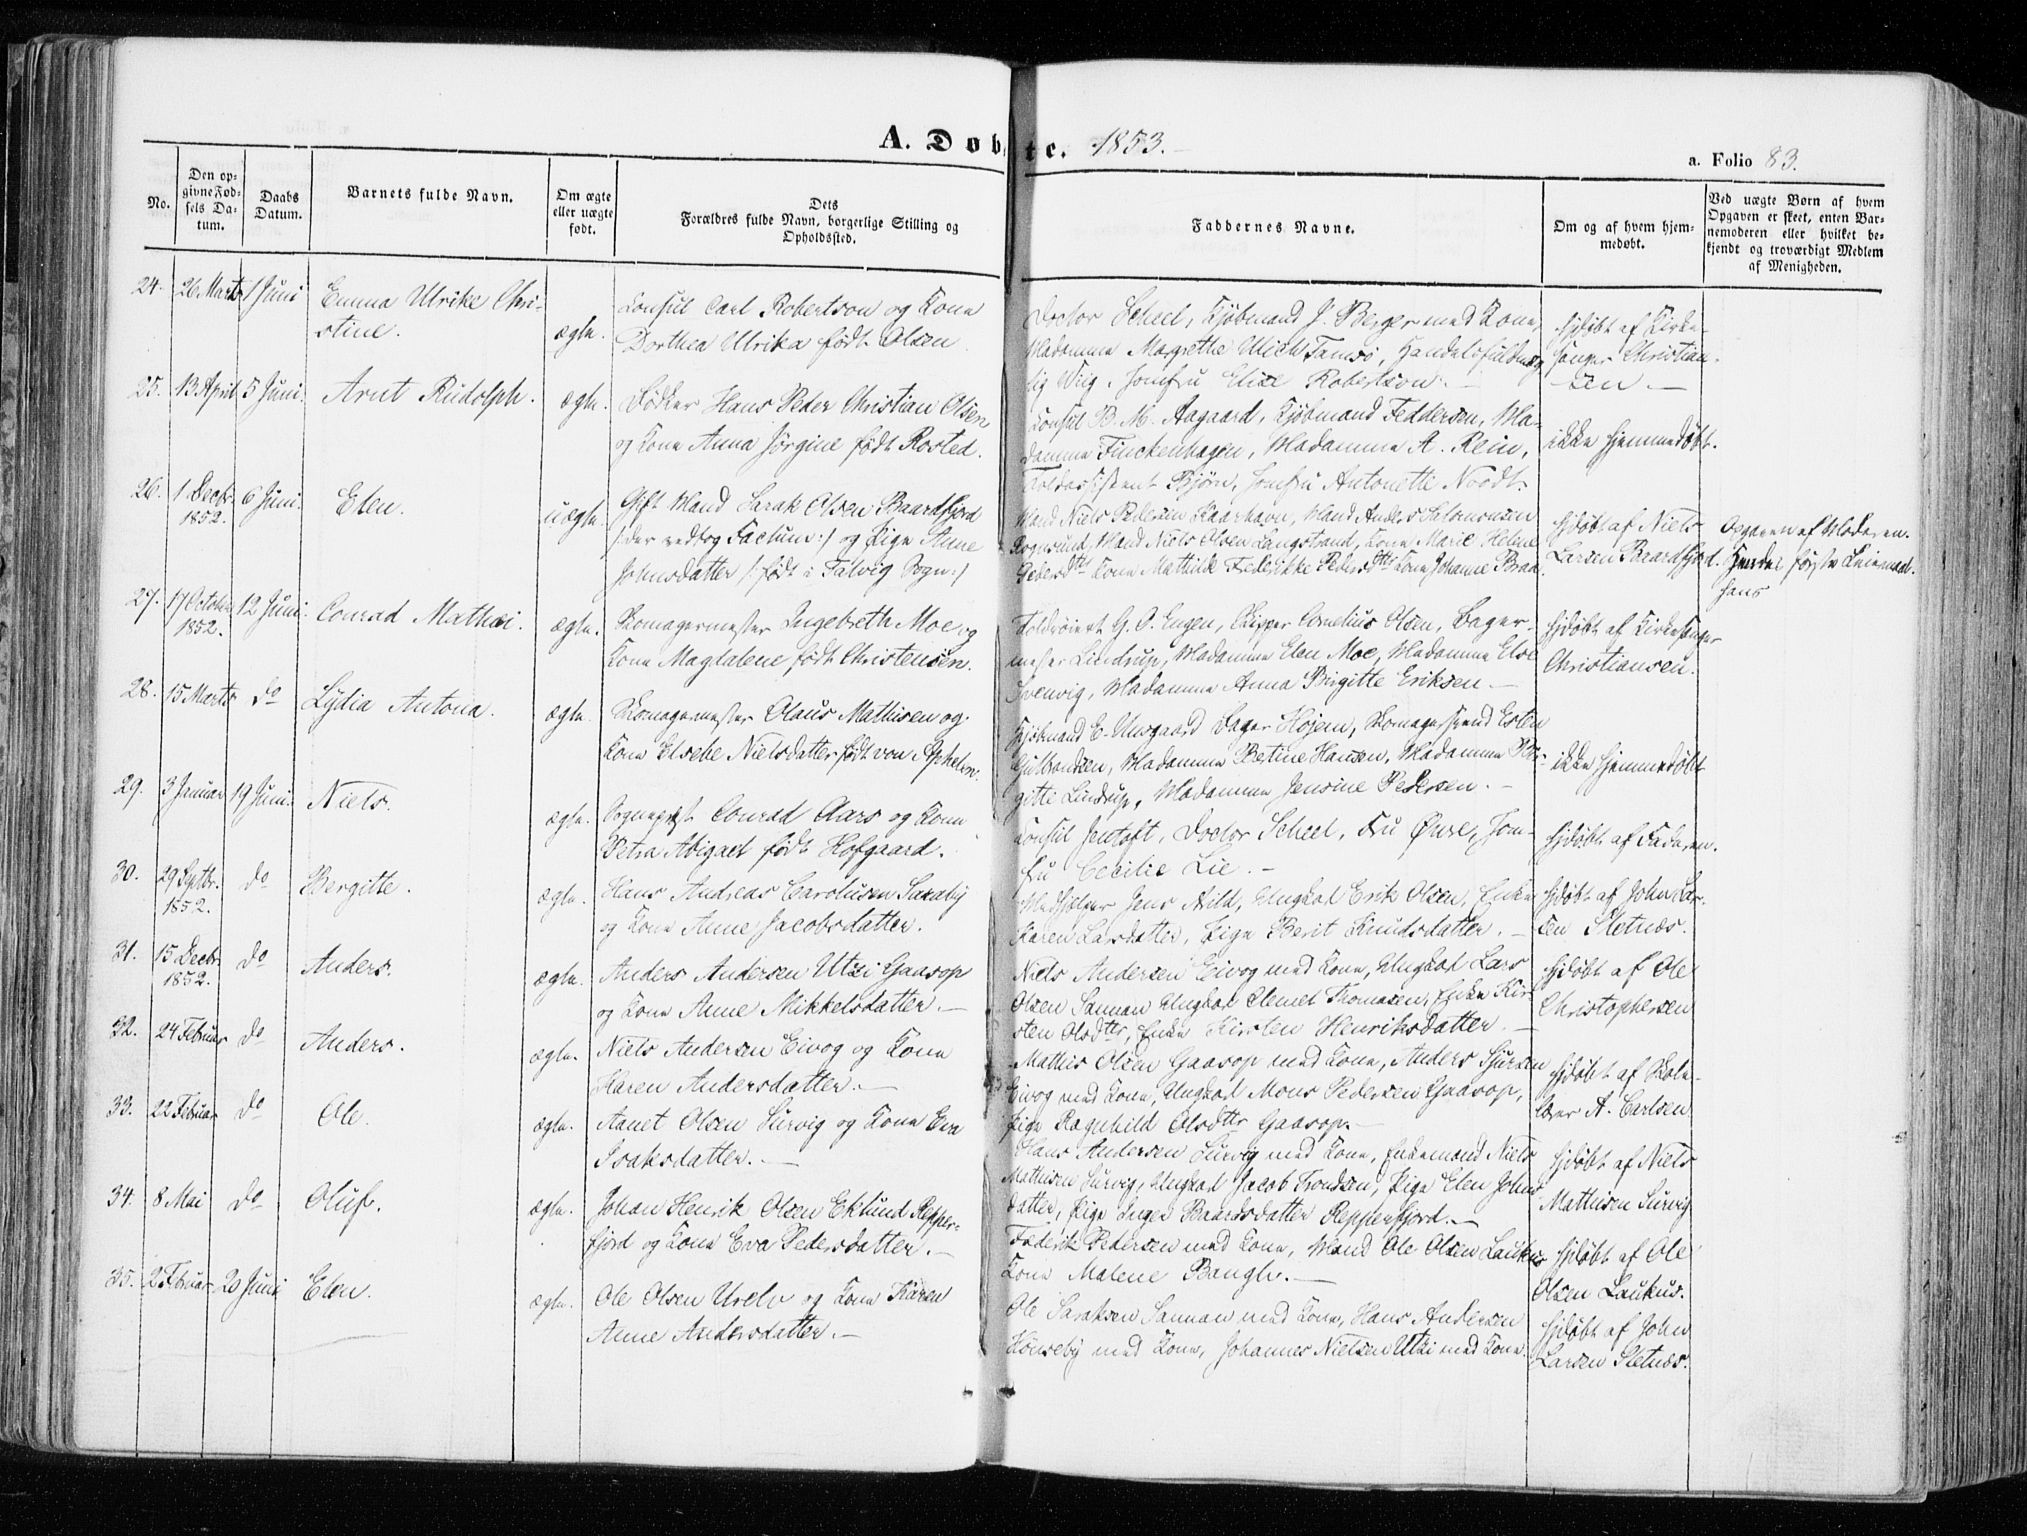 A. Døbte. 1853.
a. Folio 83.
No.
Den op-
givne Fød-
sels Da-
tum.
Daabs
Datum.
Barnets fulde Navn.
Om ægte
eller uægte
født.
Dets
Forældres fulde Navn, borgerlige Stilling og
Opholdssted.
Faddernes Navne.
Om og af hvem hjem-
medøbt.
Ved uægte Børn af hvem
Opgaven er skeet, enten Bar-
nemoderen eller hvilket be-
kjendt og troværdigt Medlem
af Menigheden.
24. 26 Marts 1 Juni Emma Ulrike Chri-
stine.
ægte.
Consul Carl Robertson og Kone
Dorthea Ulrika født Olsen
Doctor Scheel, Kjøbmand J. Berger med Kone,
Madamme Magrethe Ulich Tamsø, Handelsfuldmæg
tig Wiig, Jomfru Elise Robertson.
hjdøbt af Kirke-
sanger Christian-
sen.
25. 13 April 5 Juni. Arnt Rudolph. ægte.
Bødker Hans Peder Christian Olsen
og Kone Anna Jørgine født Rosted.
Consul B. M. Aagaard, Kjøbmand Feddersen, Ma-
damme Finckenhagen, Madamme A. Rein,
Toldassistent Bjørn, Jomfru Antonette Noodt.
ikke hjemmedøbt.
26. 1 Decbr. 1852. 6 Juni. Elen. uægte.
Gift Mand Sarak Olsen Baardfjord
/:der vedtog Factum:/ og Pige Anne
Johnsdatter /: født i Talvig Sogn:/
Mand Niels Pedersen Kaarhavn, Mand Anders Salomonsen
Rognsund, Mand Niels Olsen Langstrand, Kone Marie Helene
Pedersdtr Kone Mathilde Fredrikke Pedersdtr Kone Johanne
hjdøbt af Niels
Larsen Baardfjord.
Opgaven af Moderen.
Hendes første Leiermaal.
hans
27. 17 October 1852. 12 Juni. Conrad Mathei. ægte.
Skomagermester Ingebreth Moe og
Kone Magdalene født Christensen.
Toldroiert G. O. Engen, Skipper Cornelius Olsen, Bager-
mester Lindrup, Madamme Elen Moe, Madamme Else
Svenvig, Madamme Anna Birgitte Eriksen.
hjdøbt af Kirkesanger
Christiansen.
28. 15 Marts do Lydia Antona. ægte.
Skomagermester Olaus Mathisen og
Kone Elsebe Nielsdatter født von Aphelen.
Kjøbmand E. Ulsgaard Bager Højem, Skomagersvend Esten
Gulbrandsen, Madamme Betine Hansen, Madamme Bir-
gitte Lindrup, Madamme Jensine Pedersen.
ikke hjemmedøbt
29. 3 Januar 19 Juni. Niels. ægte.
Sognepræst Conrad Aars og Kone
Petra Abigael født Hofgaard.
Consul Jentoft, Doctor Scheel, Fru Øwre, Jom-
fru Cecilie Lie.
hjdøbt af Faderen.
30. 29 Septbr. 1852. do Bergitte. ægte.
Hans Andreas Carolusen Saraby
og Kone Anne Jacobsdatter.
Medhjælper Jens Mild, Ungkal Erik Olsen, Enke
Karen Larsdatter, Pige Berit Knudsdatter.
hjdøbt af John Lar-
sen Sletnæs.
31. 15 Decbr 1852. do Anders. ægte.
Anders Andersen Utsi Gaasop
og Kone Anne Mikkelsdatter.
Niels Andersen Eivog med Kone, Ungkal Lars
Olsen Sannan Ungkal Clemet Thomasen, Enke Kir-
sten Olsdtr, Enke Kirsten Henriksdatter.
hjdøbt af Ole
Christophersen
32. 24 Februar do Anders. ægte.
Niels Andersen Eivog og Kone
Karen Andersdatter.
Mathis Olsen Gaasop med Kone, Anders Sjursen
Eivog med Kone, Ungkal Mons Pedersen Gaasop,
Pige Ragnhild Olsdtr Gaasop.
hjdøbt af Skole-
lærer A. Carlsen
33. 22 Febuar do Ole. ægte.
Aanet Olsen Survig og Kone Eva
Isaksdatter.
Hans Andersen Survig med Kone, Enkemand Niels
Mathisen Survig, Ungkal Jacob Trondsen, Pige Elen Johns
datter, Pige Inger Baardsdatter Repperfjord.
hjdøbt af Niels
Mathisen Survig
34. 8 Mai do Oluf. ægte.
Johan Henrik Olsen Eklund Repper-
fjord og Kone Eva Pedersdatter.
Fæderik Pedersen med Kone, Mand Ole Olsen Laukus
Kone Malene Bangh.
hjdøbt af Ole
Olsen Laukus.
35. 2 Februar 20 Juni Elen. ægte.
Ole Olsen Urelv og Kone Karen
Anne Andersdatter.
Ole Saraksen Sannan med Kone, Hans Andersen
Kønseby med Kone, Johannes Nielsen Utsi med Kone.
hjdøbt af John
Larsen Sletnæs.